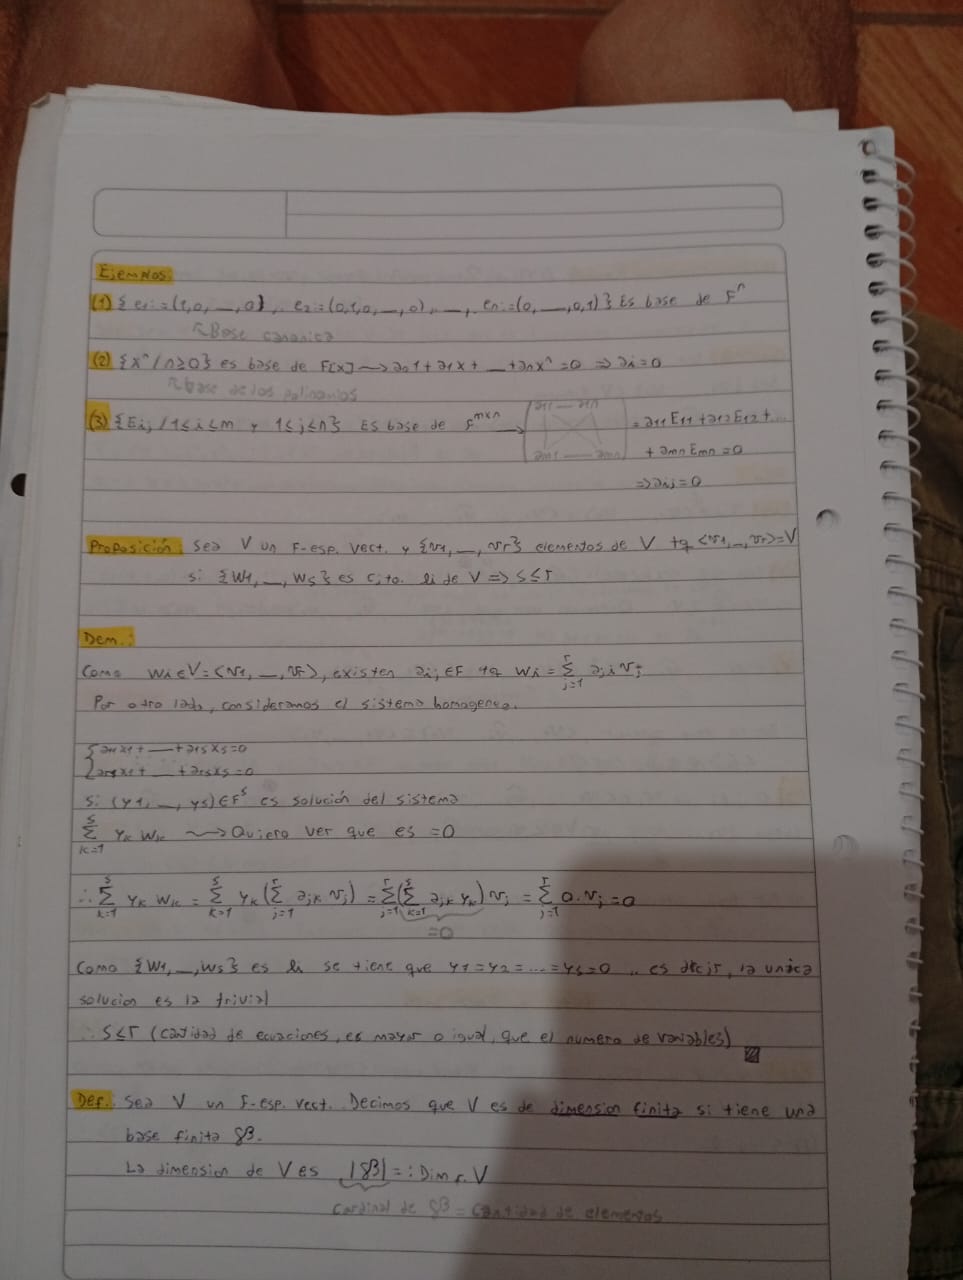 Ejemplos:
(1) {e1:=(1,0,_,0), e2:=(0,1,0,_,0), _, en:=(0,_,0,1)} Es base de F^n
↖Base canonica
(2) {x^n / n≥0} es base de F[x] ⟿ a01+a1x+_+anx^n=0 ⇒ ai=0
↖base de los polinomios
(3) {Eij / 1≤i≤m y 1≤j≤n} Es base de F^{m×n} → (a11 — a1n / am1 — amn) = a11E11+a12E12+...
+ amn Emn = 0
⇒ aij=0
Proposición: Sea V un F-esp. vect. y {v1,_,vr} elementos de V tq <v1,_,vr>=V
si {w1,_,ws} es cjto. li de V ⇒ s≤r
Dem.:
Como wi∈V=<v1,_,vr>, existen aij∈F tq wi = Σ_{j=1}^{r} aji vj
Por otro lado, consideramos el sistema homogeneo.
{a11x1+_+a1sxs=0
ar1x1+_+arsxs=0
Si (y1,_,ys)∈F^s es solución del sistema
Σ_{k=1}^{s} yk wk ⟿ Quiero ver que es =0
∴ Σ_{k=1}^{s} yk wk = Σ_{k=1}^{s} yk (Σ_{j=1}^{r} ajk vj) = Σ_{j=1}^{r} (Σ_{k=1}^{s} ajk yk) vj = Σ_{j=1}^{r} 0.vj = 0
=0
Como {w1,_,ws} es li se tiene que y1=y2=...=ys=0 , es decir, la unica
solucion es la trivial
∴ s≤r (cantidad de ecuaciones, es mayor o igual, que el numero de variables)
Def.: Sea V un F-esp. vect. Decimos que V es de dimension finita si tiene una
base finita ℬ.
La dimension de V es |ℬ|=:Dim F. V
Cardinal de ℬ = Cantidad de elementos